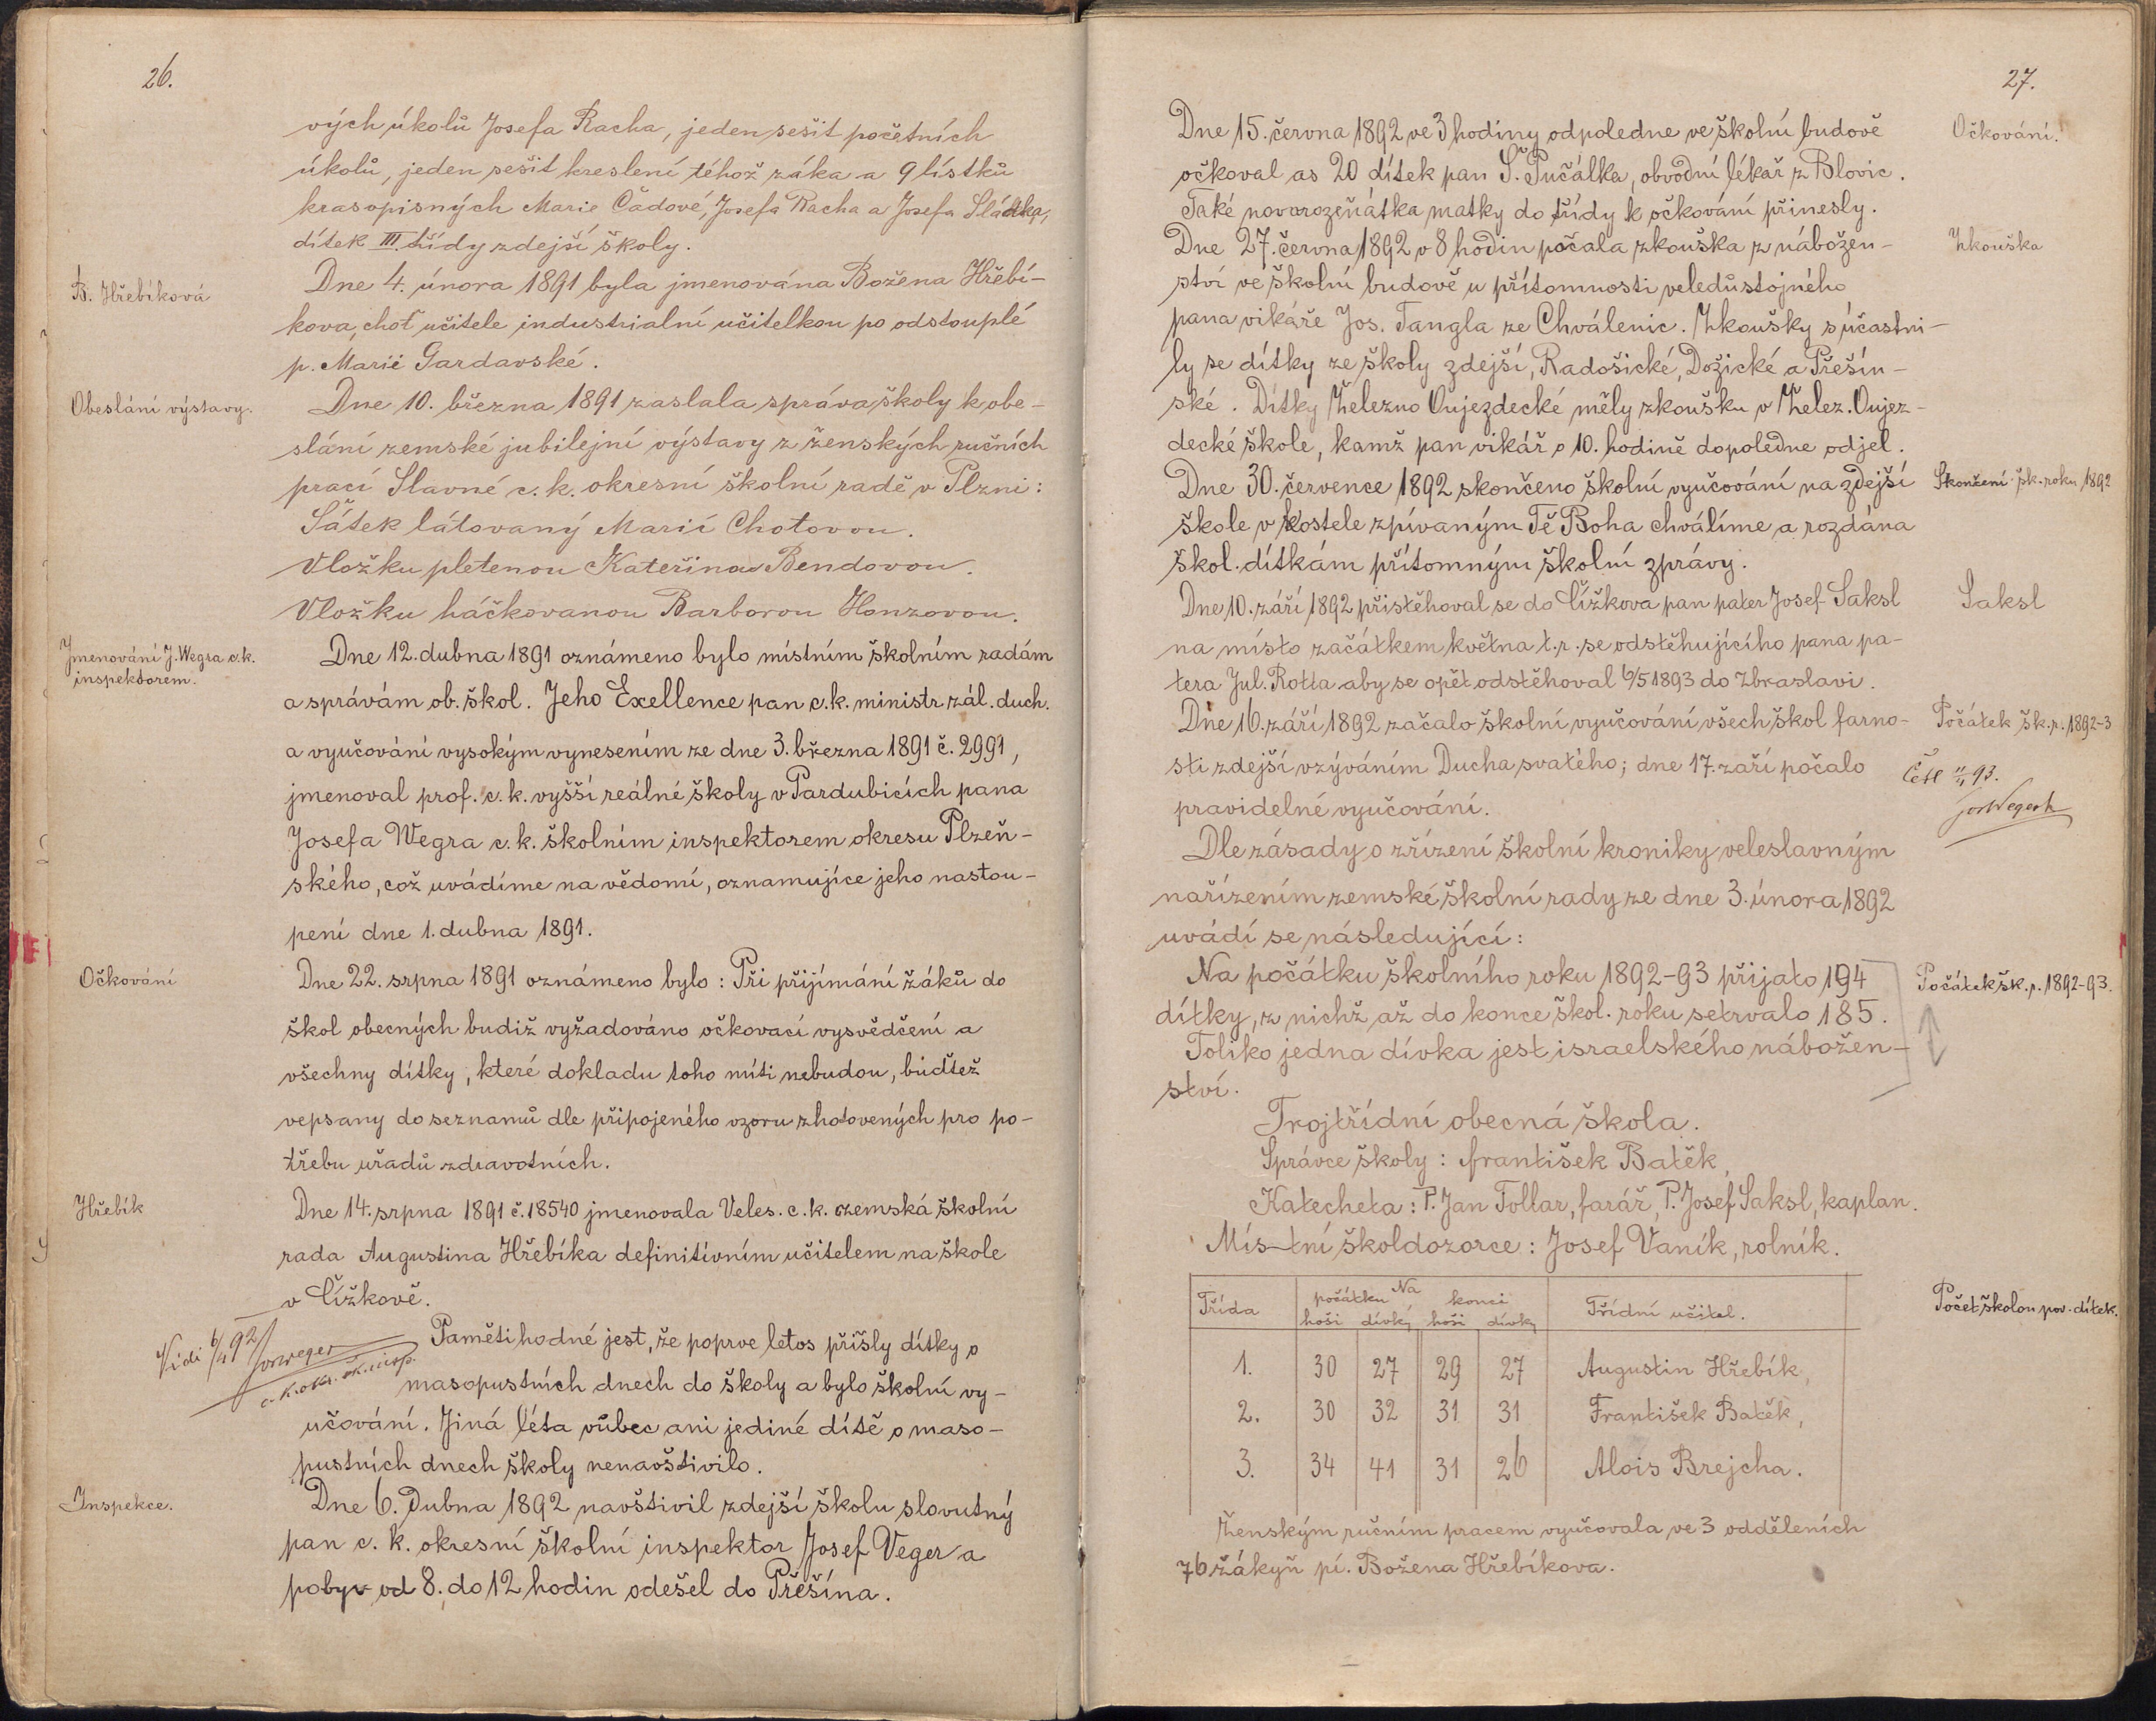 26.
vých úkolů Josefa Racha, jeden sešit početních
úkolů, jeden sešit kreslení téhož záka a 9 lístků
krasopisných Marie Čadové, Josefa Racha a Josefa Sládka,
dítek III. třídy zdejší školy.
B. Hřebíková
Dne 4. února 1891 byla jmenována Božena Hřebí-
kova, choť učitele industrialní učitelkou po odstouplé
p. Marii Gardavské.
Obeslání výstavy.
Dne 10. března 1891 zaslala správa školy k obe-
slání zemské jubilejní výstavy z ženských ručních
prací Slavné c. k. okresní školní radě v Plzni:
Šátek látovaný Marií Chotovou.
Vložku pletenou Kateřinou Bendovou.
Vložku háčkovanou Barborou Honzovou.
Jmenování J. Wegra c.k.
inspektorem.
Dne 12. dubna 1891 oznámeno bylo místním školním radám
a správám ob. škol. Jeho Exellence pan c.k. ministr zál. duch.
a vyučování vysokým vynesením ze dne 3. března 1891 č. 2991,
jmenoval prof. c. k. vyšší reálné školy v Pardubicích pana
Josefa Wegra c. k. školním inspektorem okresu Plzeň-
ského, což uvádíme na vědomí, oznamujíce jeho nastou-
pení dne 1. dubna 1891.
Očkování
Dne 22. srpna 1891 oznámeno bylo: Při přijímání žáků do
škol obecných budiž vyžadováno očkovací vysvědčení a
všechny dítky, které dokladu toho míti nebudou, buďtež
vepsany do seznamů dle připojeného vzoru zhotovených pro po-
třebu uřadů zdravotních.
Hřebík
Dne 14. srpna 1891 č. 18540 jmenovala Veles. c. k. zemská školní
rada Augustina Hřebíka definitívním učitelem na škole
v Čížkově.
Vidi 6/4 92 Jos Weger
c. k. okr. šk. insp.
Pamětihodné jest, že poprve letos přišly dítky o
masopustních dnech do školy a bylo školní vy-
učování. Jiná léta vůbec ani jediné dítě o maso-
pustních dnech školy nenavštivilo.
Inspekce.
Dne 6. Dubna 1892 navštivil zdejší školu slovutný
pan c. k. okresní školní inspektor Josef Veger a
pobyv od 8. do 12 hodin odešel do Přešína.
27.
Dne 15. června 1892 ve 3 hodiny odpoledne ve školní budově
Očkování.
očkoval as 20 dítek pan Š. Pučálka, obvodní lékař z Blovic.
Také novorozeňátka matky do třídy k očkování přinesly.
Dne 27. června 1892 v 8 hodin počala zkouška z nábožen-
Zkouška
ství ve školní budově u přítomnosti veledůstojného
pana vikáře Jos. Tangla ze Chválenic. Zkoušky súčastni-
ly se dítky ze školy zdejší, Radošické, Dožické a Přešín-
ské. Dítky Železno Oujezdecké měly zkoušku v Želez. Oujez-
decké škole, kamž pan vikář o 10. hodině dopoledne odjel.
Dne 30. července 1892 skončeno školní vyučování na zdejší
Skončení šk. roku 1892
škole v kostele zpívaným Tě Boha chválíme a rozdána
škol. dítkám přítomným školní zprávy.
Dne 10. září 1892 přistěhoval se do Čížkova pan pater Josef Saksl
Saksl
na místo začátkem května t. r. se odstěhujícího pana pa-
tera Jul. Rotta aby se opět odstěhoval 6/5 1893 do Zbraslavi.
Dne 16. září 1892 začalo školní vyučování všech škol farno-
Počátek šk. r. 1892-3
sti zdejší vzýváním Ducha svatého; dne 17. zaří počalo
Četl 11/4 93.
Jos Weger
pravidelné vyučování.
Dle zásady o zřízení školní kroniky veleslavným
nařízením zemské školní rady ze dne 3. února 1892
uvádí se následující:
Na počátku školního roku 1892-93 přijato 194
Počátek šk. r. 1892-93.
dítky, z nichž až do konce škol. roku setrvalo 185.
Toliko jedna dívka jest israelského nábožen-
ství.
Trojtřídní obecná škola.
Správce školy: František Batěk,
Katecheta: P. Jan Tollar, farář, P. Josef Saksl, kaplan.
Místní školdozorce: Josef Vaník, rolník.
Počet školou pov. dítek.
Třída Na počátku konci Třídní učitel.
hoši dívky hoši dívky
1. 30 27 29 27 Augustin Hřebík,
2. 30 32 31 31 František Batěk,
3. 34 41 31 26 Alois Brejcha.
Ženským ručním pracem vyučovala ve 3 odděleních
76 žákyň pí. Božena Hřebíkova.